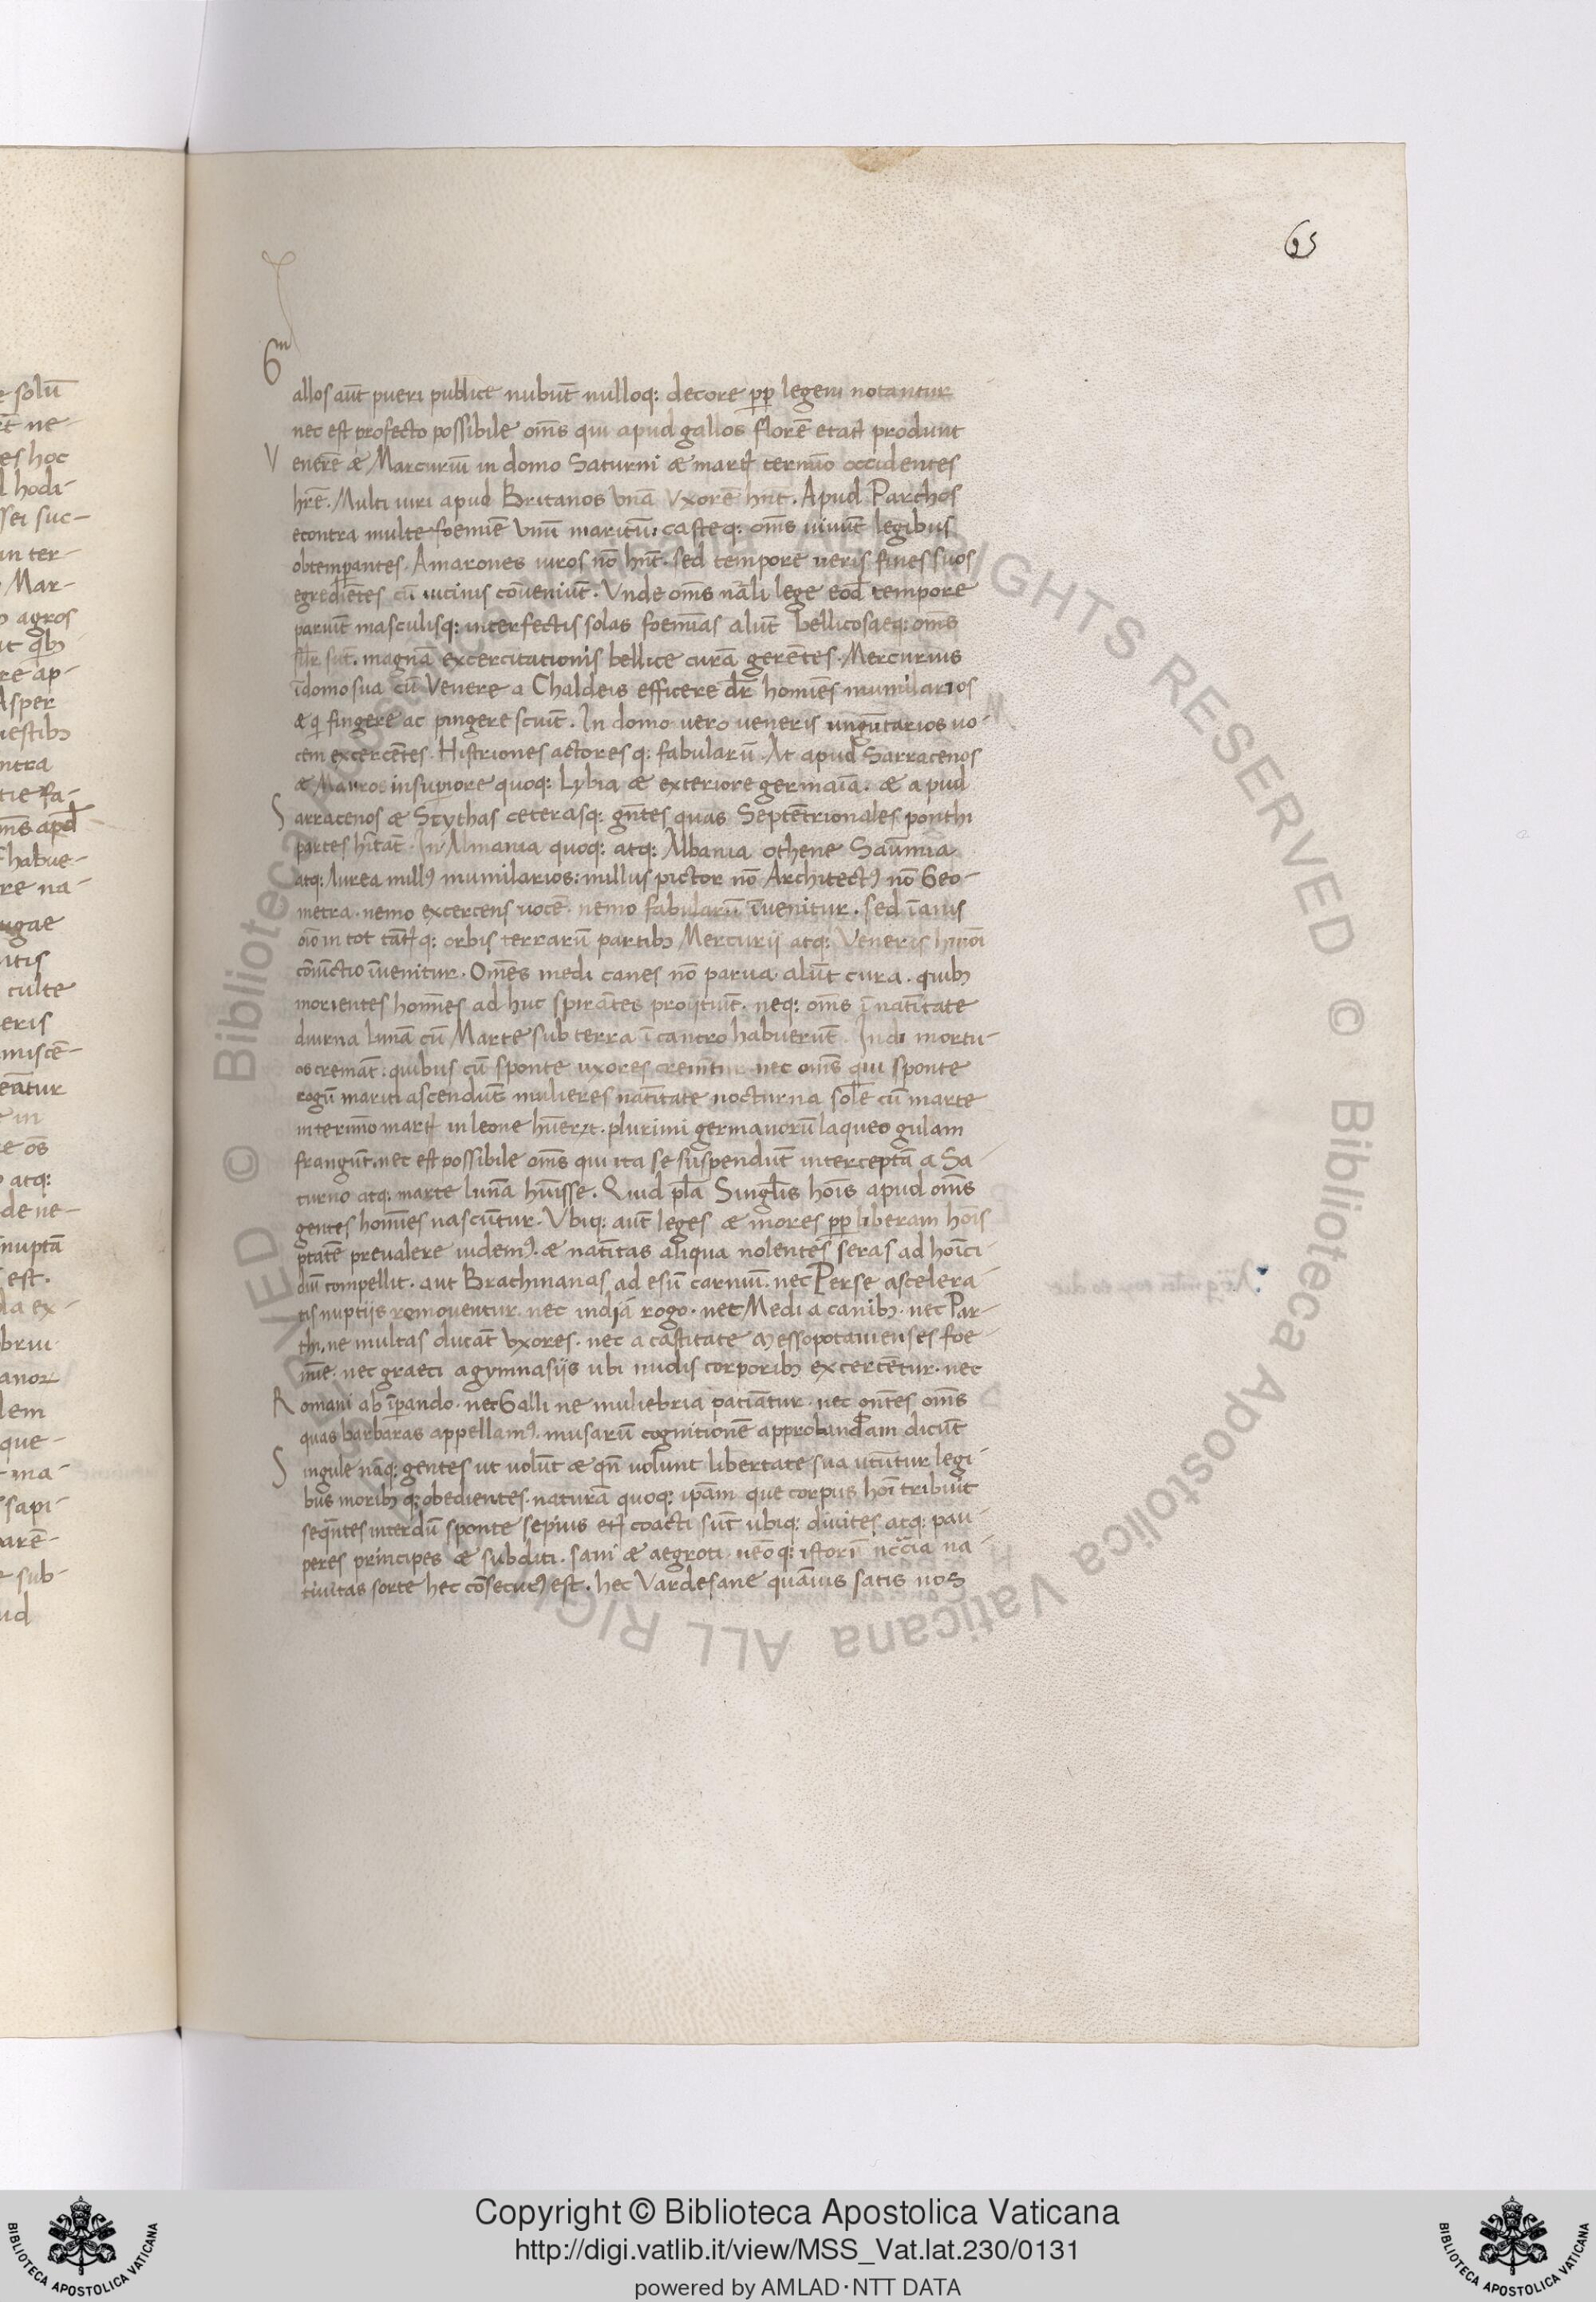 65
6m
allos aūt pueri publice nubūt nulloq: decore ꝑꝑ legem notantur
nec est profecto possibile om̄s qui apud gallos florē etat produnt
V enerē & Marcuriū in domo Saturni & mart termīo occidentes
hr̄e. Multi uiri apud Britanos Vnā Vxorē hn̄t. Apud Parthos
econtra multe foemīe Vnū maritū: casteq: om̄s uiuūt legibus
obtemꝑantes. Amazones uiros nō hn̄t. sed tempore ueris fines suos
egrediētes cū uicinis cōueniūt. Vnde om̄s nāli lege eod̄ tempore
pariūt masculisq: interfectis solas foemīas alūt bellicosaeq: om̄s
sūt. magnā excercitationis bellice curā gerētes. Mercurius
ī domo sua cū Venere a Chaldeis efficere dr̄ homīes mumularios
& qi fingere ac pingere sciūt. In domo uero ueneris ungūtarios uo-
cem excercētes. Histriones actores q: fabularū. At apud Sarracenos
& Mauros in suꝑiore quoq: Lybia & exteriore germaīa. & apud
S arracenos & Scythas ceterasq: gn̄tes quas Septētrionales ponthi
partes hītāt. In Almania quoq: atq: Albania othene Saunnia
atq: Aurea nullꝰ mumilarios: nullus pictor nō Architectꝰ nō Geo-
metra. nemo excercens uocē. nemo fabularū īuenitur. sed īanis
oīo in tot tātq: orbis terrarū partibꝫ Mercurij atq: Veneris
cōiūctio īuenitur. Omēs medi canes nō parua alūt cura. quibꝫ
morientes homīes ad huc spirātes proijciūt. neq: om̄s ī natīitate
diurna lunā cū Marte sub terra ī cancro habuerūt. Indi mortu-
os cremāt. quibus cū sponte uxores nec om̄s qui sponte
rogū mariti ascendūt mulieres natīitate nocturna solē cū marte
in termīo mart in leone hūerūt. plurimi germanorū laqueo gulam
frangūt. nec est possibile om̄s qui ita se suspendūt interceptā a Sa-
turno atq: marte lunā hūisse. Quid pla Singlīs hoīs apud om̄s
gentes homīes nascūtur. Vbiq: aūt leges & mores ꝑꝑ liberam hoīs
ptātē preualere uidemꝰ. & natīitas aliqua nolentes seras ad hoīci-
diū compellit. aut Brachmanas ad esū carniū. nec Perse a scelera-
tis nuptijs remouentur. nec indiā rogo. nec Medi a canibꝫ. nec Par-
thi. ne multas ducāt Vxores. nec a castitate Messopotamienses foe-
mīe. nec graeci a gymnasijs ubi nudis corporibꝫ excercētur. nec
R omani ab īꝑando. nec Galli ne muliebria patiātur. nec gn̄tes om̄s
quas barbaras appellamꝰ. musarū cognitionē approbandam dicūt
S ingule nāq: gentes ut uolūt & qn̄ uolunt libertate sua utūtur legi-
bus moribꝫ q: obedientes. naturā quoq: ip̄am que corpus hoī tribuit
seqn̄tes interdū sponte sepius et coacti sūt ubiq: diuites atq: pau-
peres principes & subditi. sani & aegroti na-
tiuitas sorte hec cōsecutꝰ est. hec Vardesane quāuis satis nos
Copyright © Biblioteca Apostolica Vaticana
http://digi.vatlib.it/view/MSS_Vat.lat.230/0131
powered by AMLAD·NTT DATA